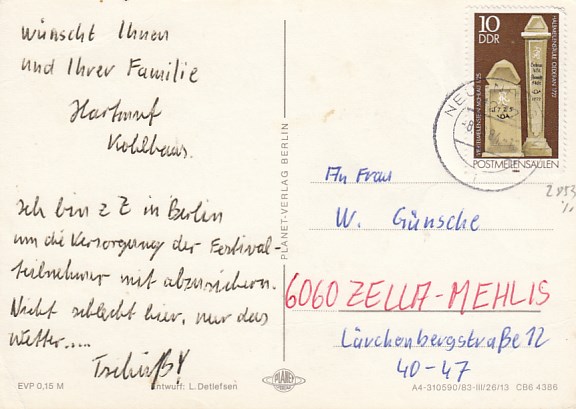 wünscht Ihnen
und Ihrer Familie
Hartmut
Kohlhaas.
Ich bin z Z in Berlin
um die Versorgung der Festival-
teilnehmer mit abzusichern.
Nicht schlecht hier, nur das
Wetter....
Tschüß!
EVP 0,15 M
Entwurf: L. Detlefsen
PLANET-VERLAG BERLIN
PLANET
10
DDR
POSTMEILENSÄULEN
An Frau
W. Günsche
6060 ZELLA-MEHLIS
Lärchenbergstraße 12
40-47
A4-310590/83-III/26/13 CB6 4386